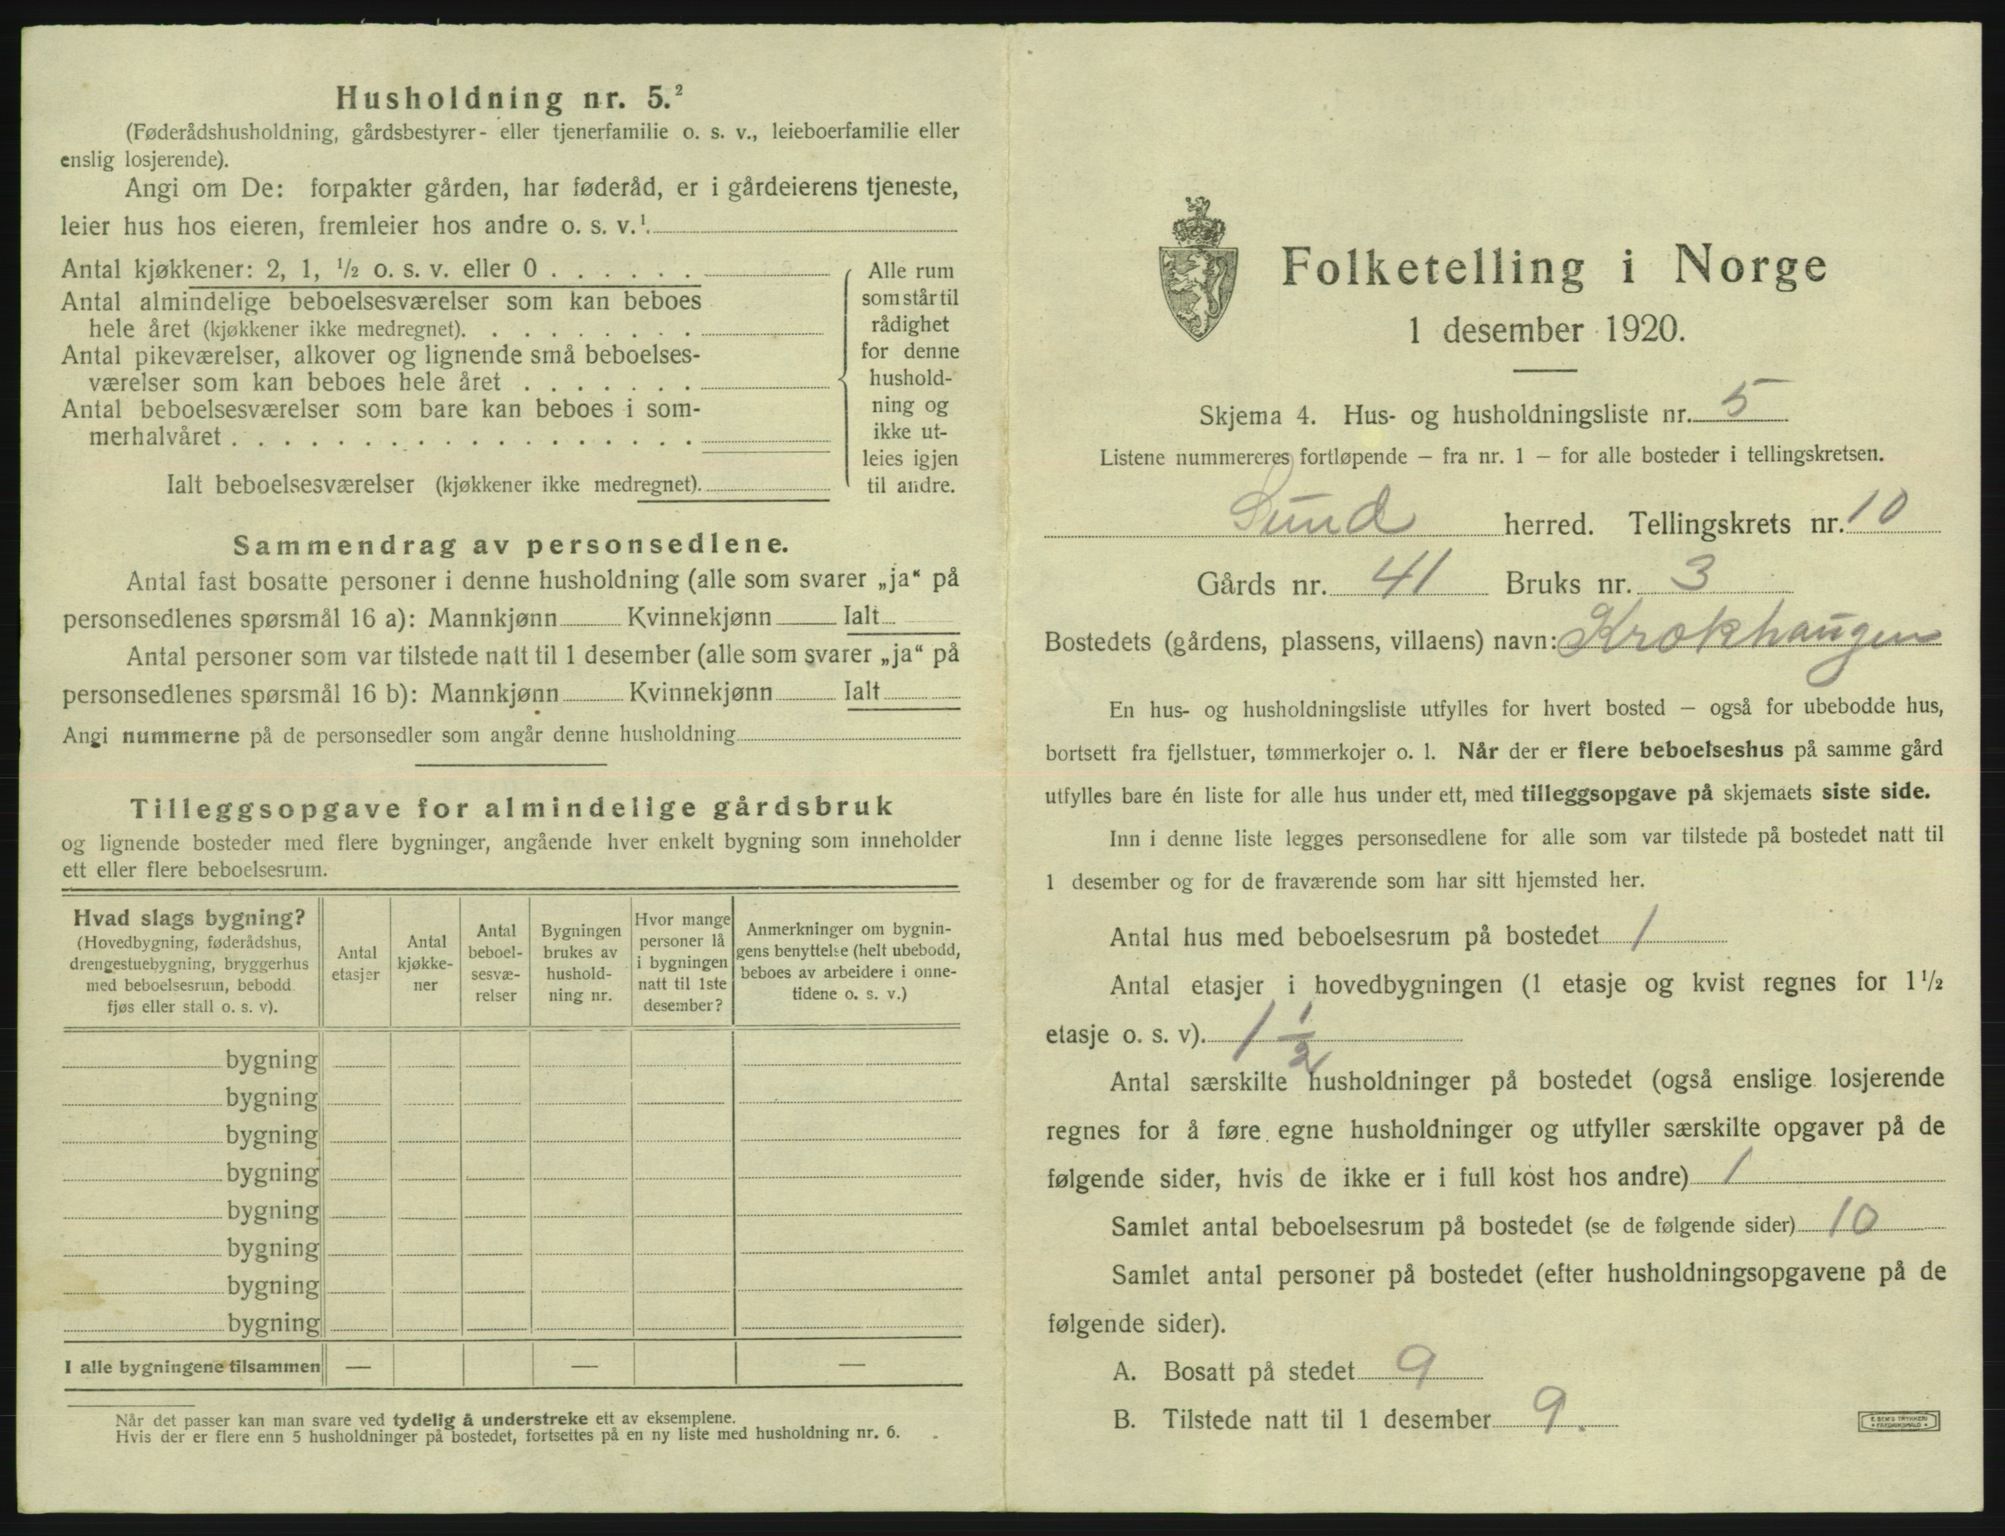 Husholdning nr. 5.²
(Føderådshusholdning, gårdsbestyrer- eller tjenerfamilie o. s. v., leieboerfamilie eller
enslig losjerende).
Angi om De: forpakter gården, har føderåd, er i gårdeierens tjeneste,
leier hus hos eieren, fremleier hos andre o. s. v.¹
Antal kjøkkener: 2, 1, ½ o. s. v. eller 0 . . . . . .
Antal almindelige beboelsesværelser som kan beboes
hele året (kjøkkener ikke medregnet). . . . . . . . .
Antal pikeværelser, alkover og lignende små beboelses-
værelser som kan beboes hele året . . . . . . .
Antal beboelsesværelser som bare kan beboes i som-
merhalvåret . . . . . . . . . . . . . . . . . .
Ialt beboelsesværelser (kjøkkener ikke medregnet).
Alle rum
som står til
rådighet
for denne
hushold-
ning og
ikke ut-
leies igjen
til andre.
Sammendrag av personsedlene.
Antal fast bosatte personer i denne husholdning (alle som svarer „ja“ på
personsedlenes spørsmål 16 a): Mannkjønn Kvinnekjønn Ialt
Antal personer som var tilstede natt til 1 desember (alle som svarer „ja“ på
personsedlenes spørsmål 16 b): Mannkjønn Kvinnekjønn Ialt
Angi nummerne på de personsedler som angår denne husholdning
Tilleggsopgave for almindelige gårdsbruk
og lignende bosteder med flere bygninger, angående hver enkelt bygning som inneholder
ett eller flere beboelsesrum.
Hvad slags bygning?
(Hovedbygning, føderådshus,
drengestuebygning, bryggerhus
med beboelsesrum, bebodd
fjøs eller stall o. s. v).
Antal
etasjer
Antal
kjøkke-
ner
Antal
beboel-
sesvæ-
relser
Bygningen
brukes av
hushold-
ning nr.
Hvor mange
personer lå
i bygningen
natt til 1ste
desember?
Anmerkninger om bygnin-
gens benyttelse (helt ubebodd,
beboes av arbeidere i onne-
tidene o. s. v.)
bygning
bygning
bygning
bygning
bygning
bygning
bygning
bygning
I alle bygningene tilsammen — — —
Når det passer kan man svare ved tydelig å understreke ett av eksemplene.
Hvis der er flere enn 5 husholdninger på bostedet, fortsettes på en ny liste med husholdning nr. 6.
Folketelling i Norge
1 desember 1920.
Skjema 4. Hus- og husholdningsliste nr. 5
Listene nummereres fortløpende — fra nr. 1 — for alle bosteder i tellingskretsen.
Sund herred. Tellingskrets nr. 10
Gårds nr. 41 Bruks nr. 3
Bostedets (gårdens, plassens, villaens) navn: Krokhaugen
En hus- og husholdningsliste utfylles for hvert bosted — også for ubebodde hus,
bortsett fra fjellstuer, tømmerkojer o. l. Når der er flere beboelseshus på samme gård
utfylles bare én liste for alle hus under ett, med tilleggsopgave på skjemaets siste side.
Inn i denne liste legges personsedlene for alle som var tilstede på bostedet natt til
1 desember og for de fraværende som har sitt hjemsted her.
Antal hus med beboelsesrum på bostedet 1
Antal etasjer i hovedbygningen (1 etasje og kvist regnes for 1½
etasje o. s. v). 1 ½
Antal særskilte husholdninger på bostedet (også enslige losjerende
regnes for å føre egne husholdninger og utfyller særskilte opgaver på de
følgende sider, hvis de ikke er i full kost hos andre) 1
Samlet antal beboelsesrum på bostedet (se de følgende sider) 10
Samlet antal personer på bostedet (efter husholdningsopgavene på de
følgende sider).
A. Bosatt på stedet 9
B. Tilstede natt til 1 desember 9.